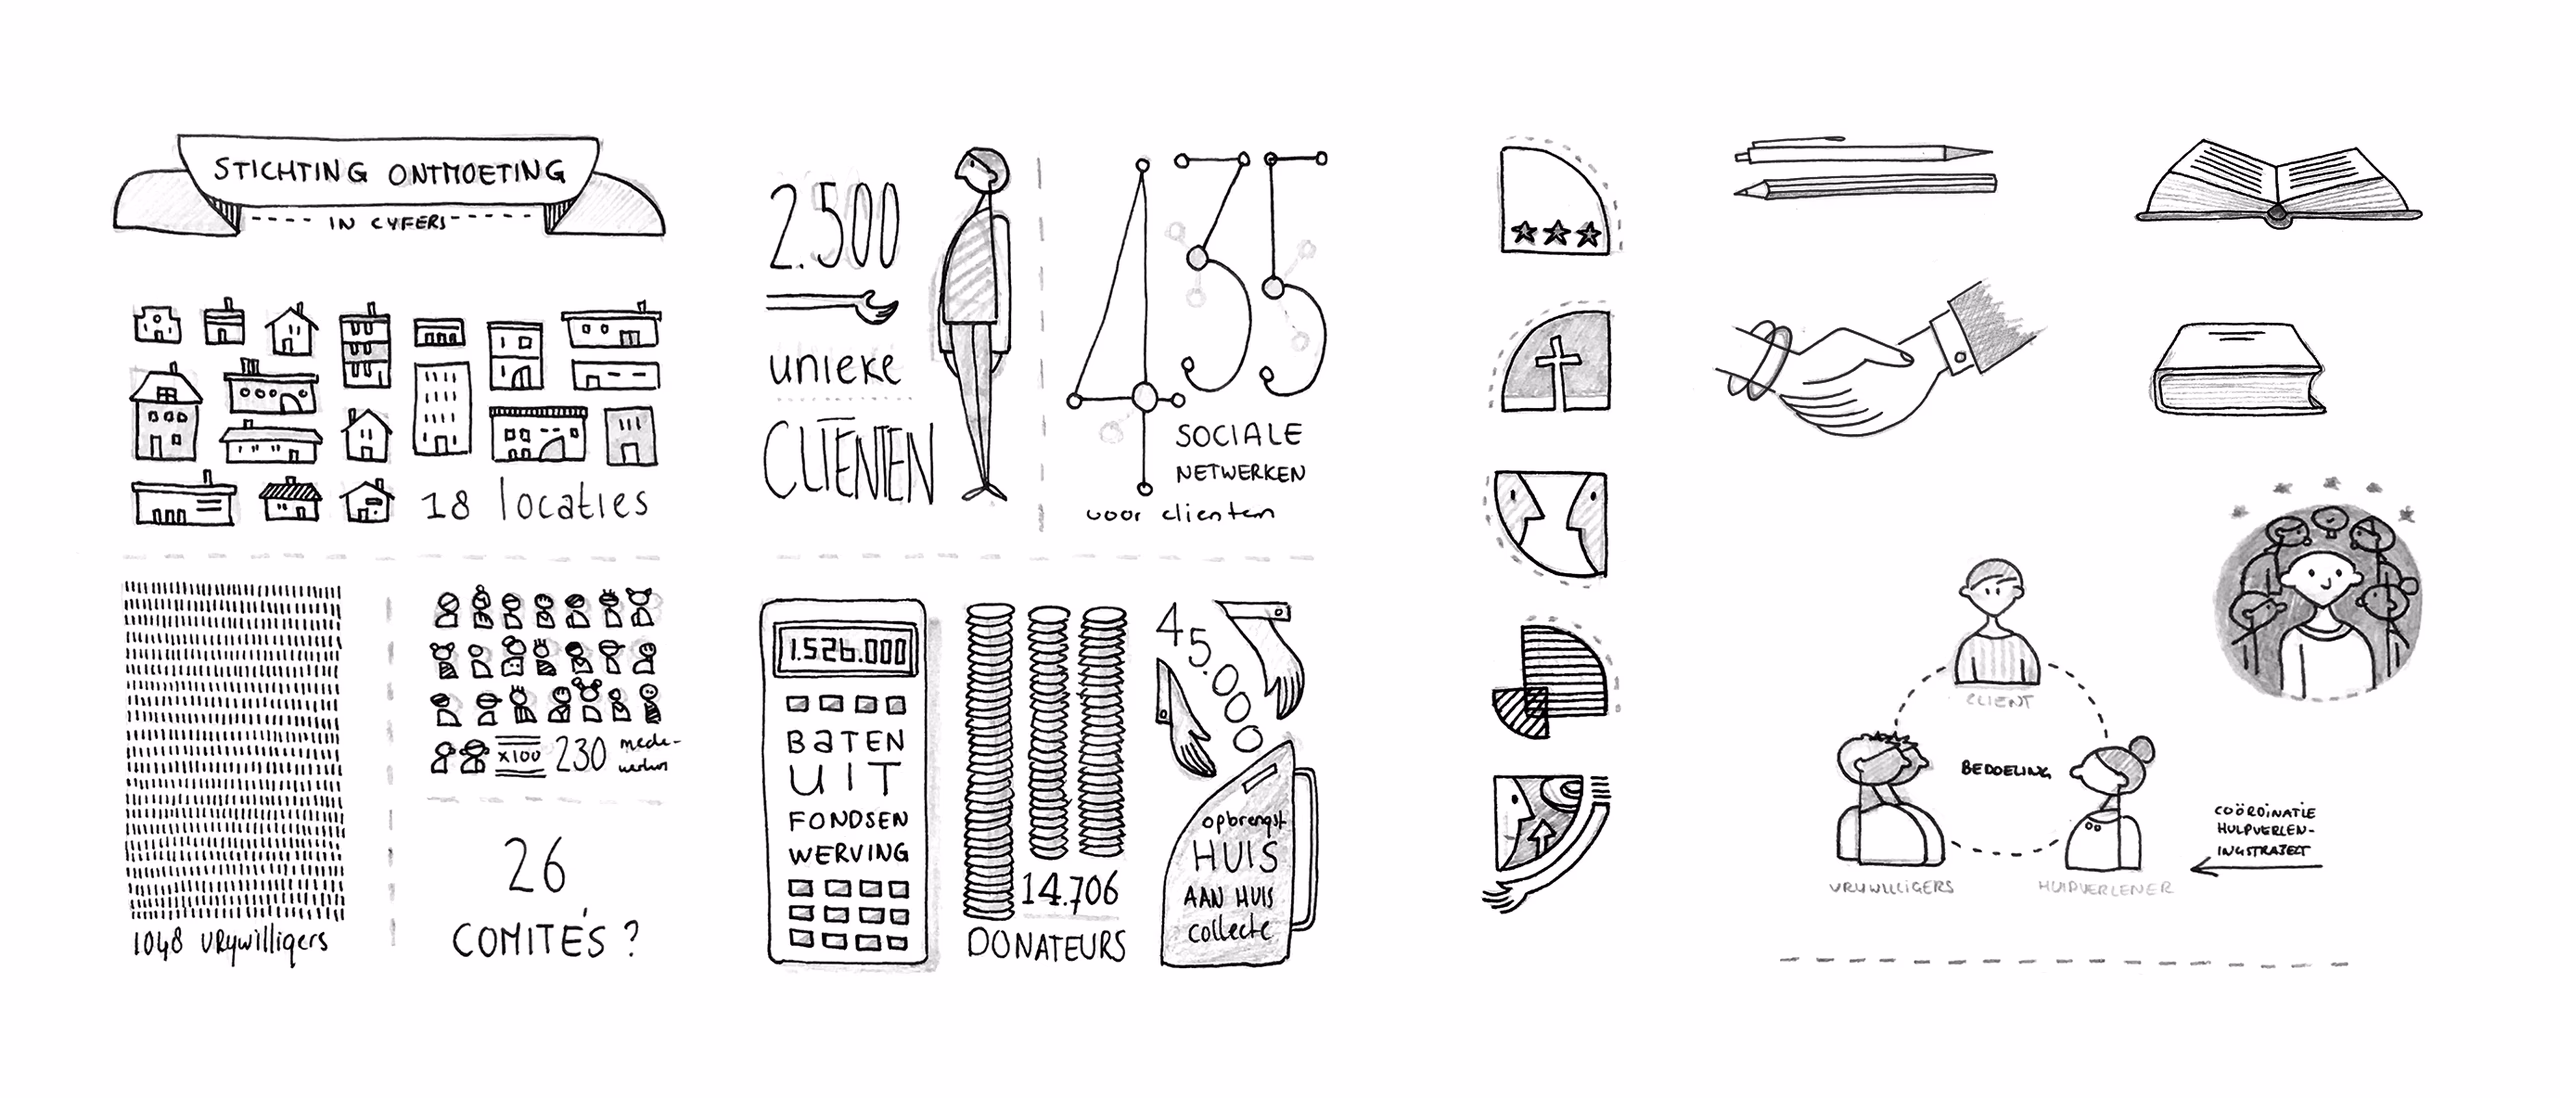 STICHTING ONTMOETING
IN CYFERS
18 locaties
1048 vrywilligers
x100
230 mede-
werkers
26
COMITÉS ?
2.500
unieke
CLIENTEN
435
SOCIALE
NETWERKEN
voor clienten
1.526.000
BaTEN
UIT
FONDSEN
WERVING
14.706
DONATEURS
45.000
opbrengst
HUIS
AAN HUIS
collecte
CLIENT
BEDOELING
VRYWILLIGERS
HULPVERLENER
COÖRDINATIE
HULPVERLEN-
INGSTRAJECT